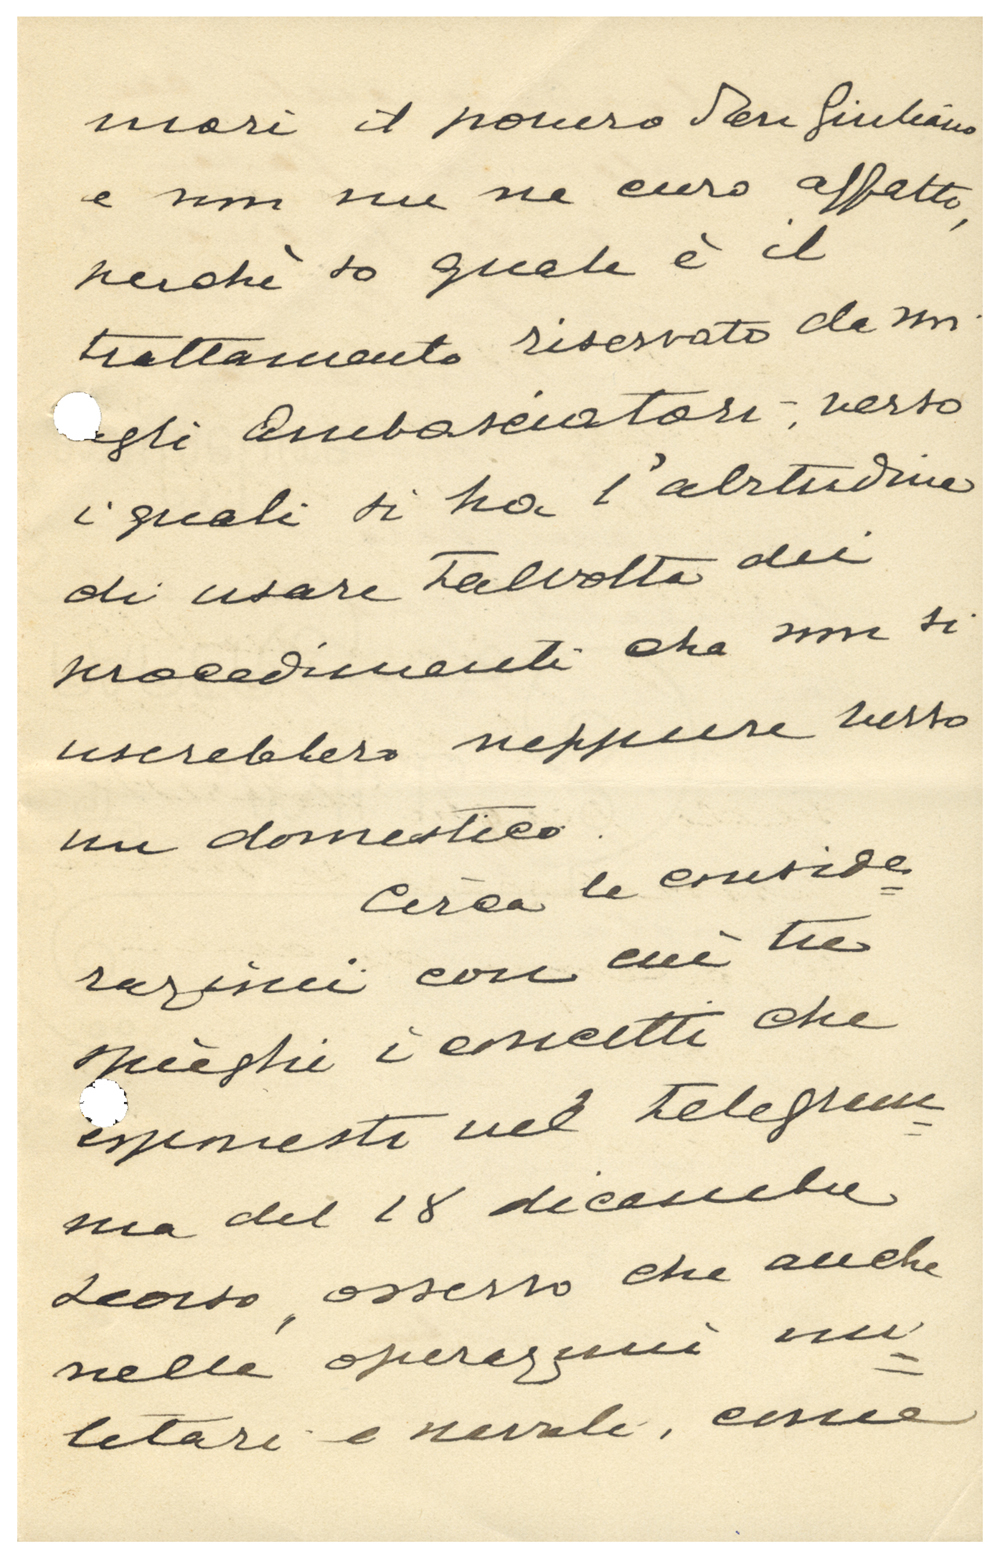 morì il povero San Giuliano
e non me ne curo affatto,
perchè so quale è il
trattamento riservato da noi
agli Ambasciatori, verso
i quali si ha l'abitudine
di usare talvolta dei
procedimenti che non si
userebbero neppure verso
un domestico.
Circa le conside=
razioni con cui tu
spieghi i concetti che
esponesti nel telegram=
ma del 18 dicembre
scorso, osservo che anche
nelle operazioni mi=
litari e navali, come